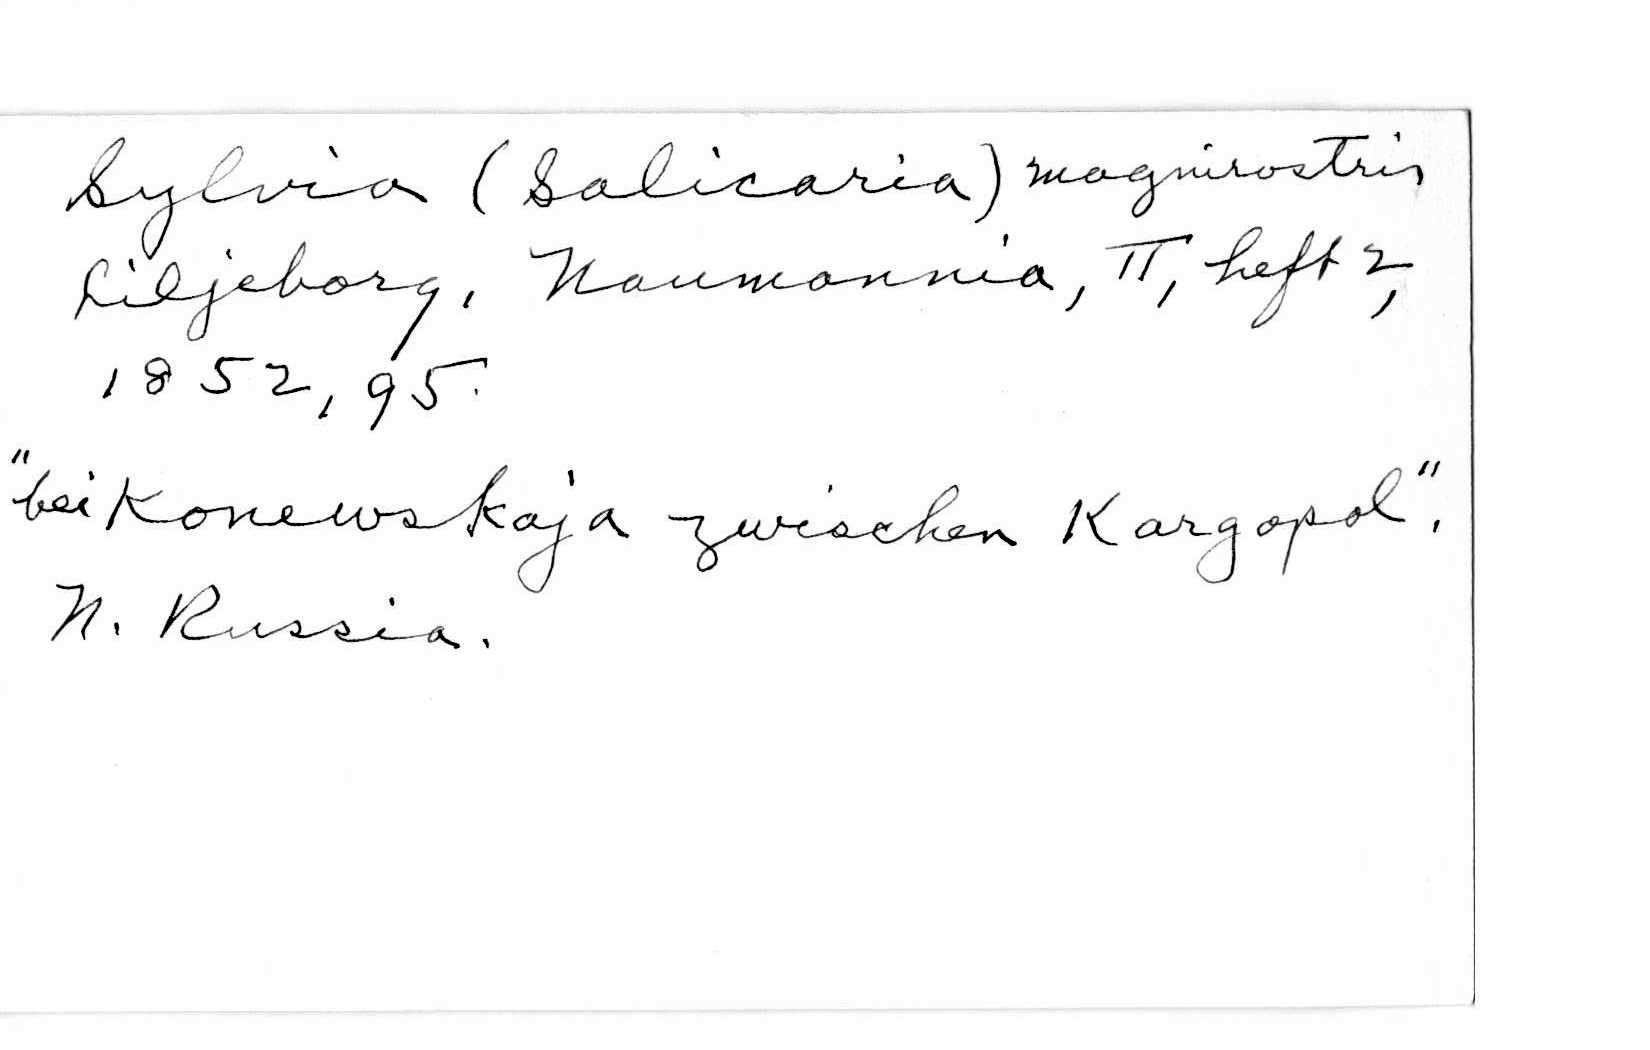 Sylvia (Salicaria) magnirostris
Liljeborg, Naumannia, II, heft 2,
1852, 95.
"bei Konewskaja zwischen Kargopol".
N. Russia.